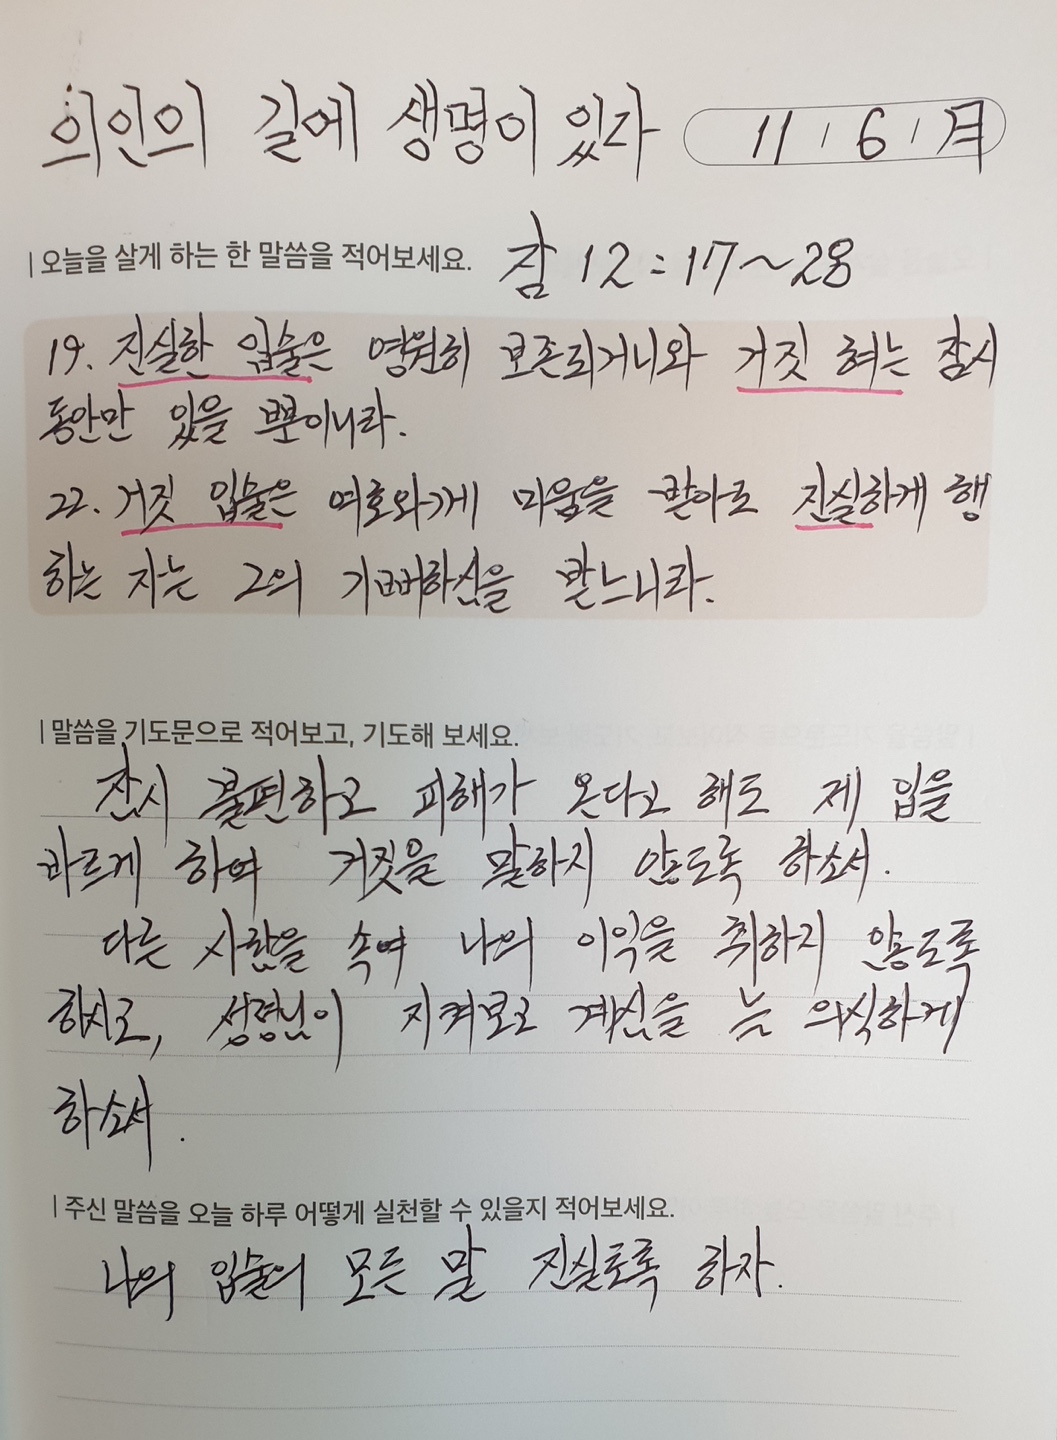 의인의 길에 생명이 있다 11 / 6 / 月
| 오늘을 살게 하는 한 말씀을 적어보세요. 잠 12 : 17 ~ 28
19. 진실한 입술은 영원히 보존되거니와 거짓 혀는 잠시
동안만 있을 뿐이니라.
22. 거짓 입술은 여호와께 미움을 받아도 진실하게 행
하는 자는 그의 기뻐하심을 받느니라.
| 말씀을 기도문으로 적어보고, 기도해 보세요.
잠시 불편하고 피해가 온다고 해도 제 입을
바르게 하여 거짓을 말하지 않도록 하소서.
다른 사람을 속여 나의 이익을 취하지 않도록
하시고, 성령님이 지켜보고 계심을 늘 의식하게
하소서.
| 주신 말씀을 오늘 하루 어떻게 실천할 수 있을지 적어보세요.
나의 입술의 모든 말 진실토록 하자.